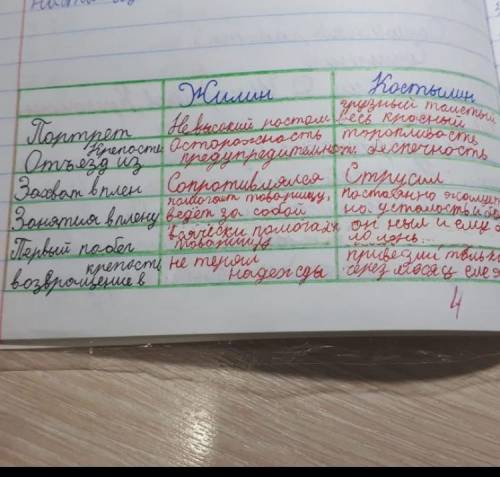 Жилин Костылин
Портрет Невысокий ростом грузный толстый весь красный
Отъезд из крепости Осторожность предупредительность торопливость беспечность
Захват в плен Сопротивлялся Струсил
Занятия в плену помогает товарищу, ведёт за собой постоянно
но усталость и
Первый побег всячески помогает товарищу он ныл и ему было лень...
возвращение в крепость не терял надежды привезли только через месяц еле
4